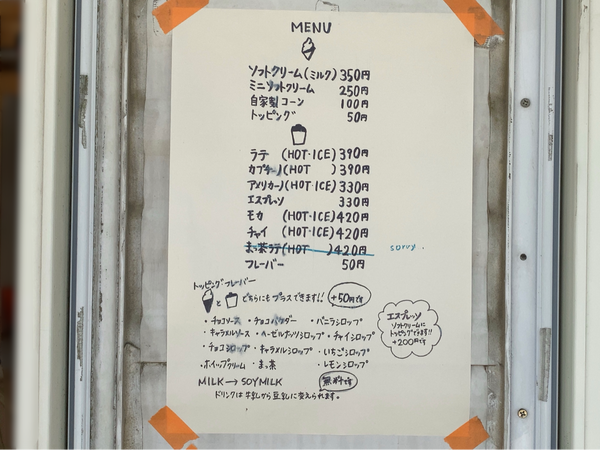 MENU
ソフトクリーム(ミルク) 350円
ミニソフトクリーム 250円
自家製コーン 100円
トッピング 50円
ラテ (HOT・ICE) 390円
カプチーノ(HOT ) 390円
アメリカーノ(HOT・ICE) 330円
エスプレッソ 330円
モカ (HOT・ICE) 420円
チャイ (HOT・ICE) 420円
まっ茶ラテ(HOT ) 420円 sorry.
フレーバー 50円
トッピングフレーバー
と どちらにもプラスできます!! +50円です
・チョコソース ・チョコパウダー ・バニラシロップ
・キャラメルソース ・ヘーゼルナッツシロップ ・チャイシロップ
・チョコシロップ ・キャラメルシロップ ・いちごシロップ
・ホイップクリーム ・まっ茶 ・レモンシロップ
エスプレッソ
ソフトクリームに
トッピングできます!!
+200円です
MILK → SOYMILK 無料です
ドリンクは牛乳から豆乳に変えられます。